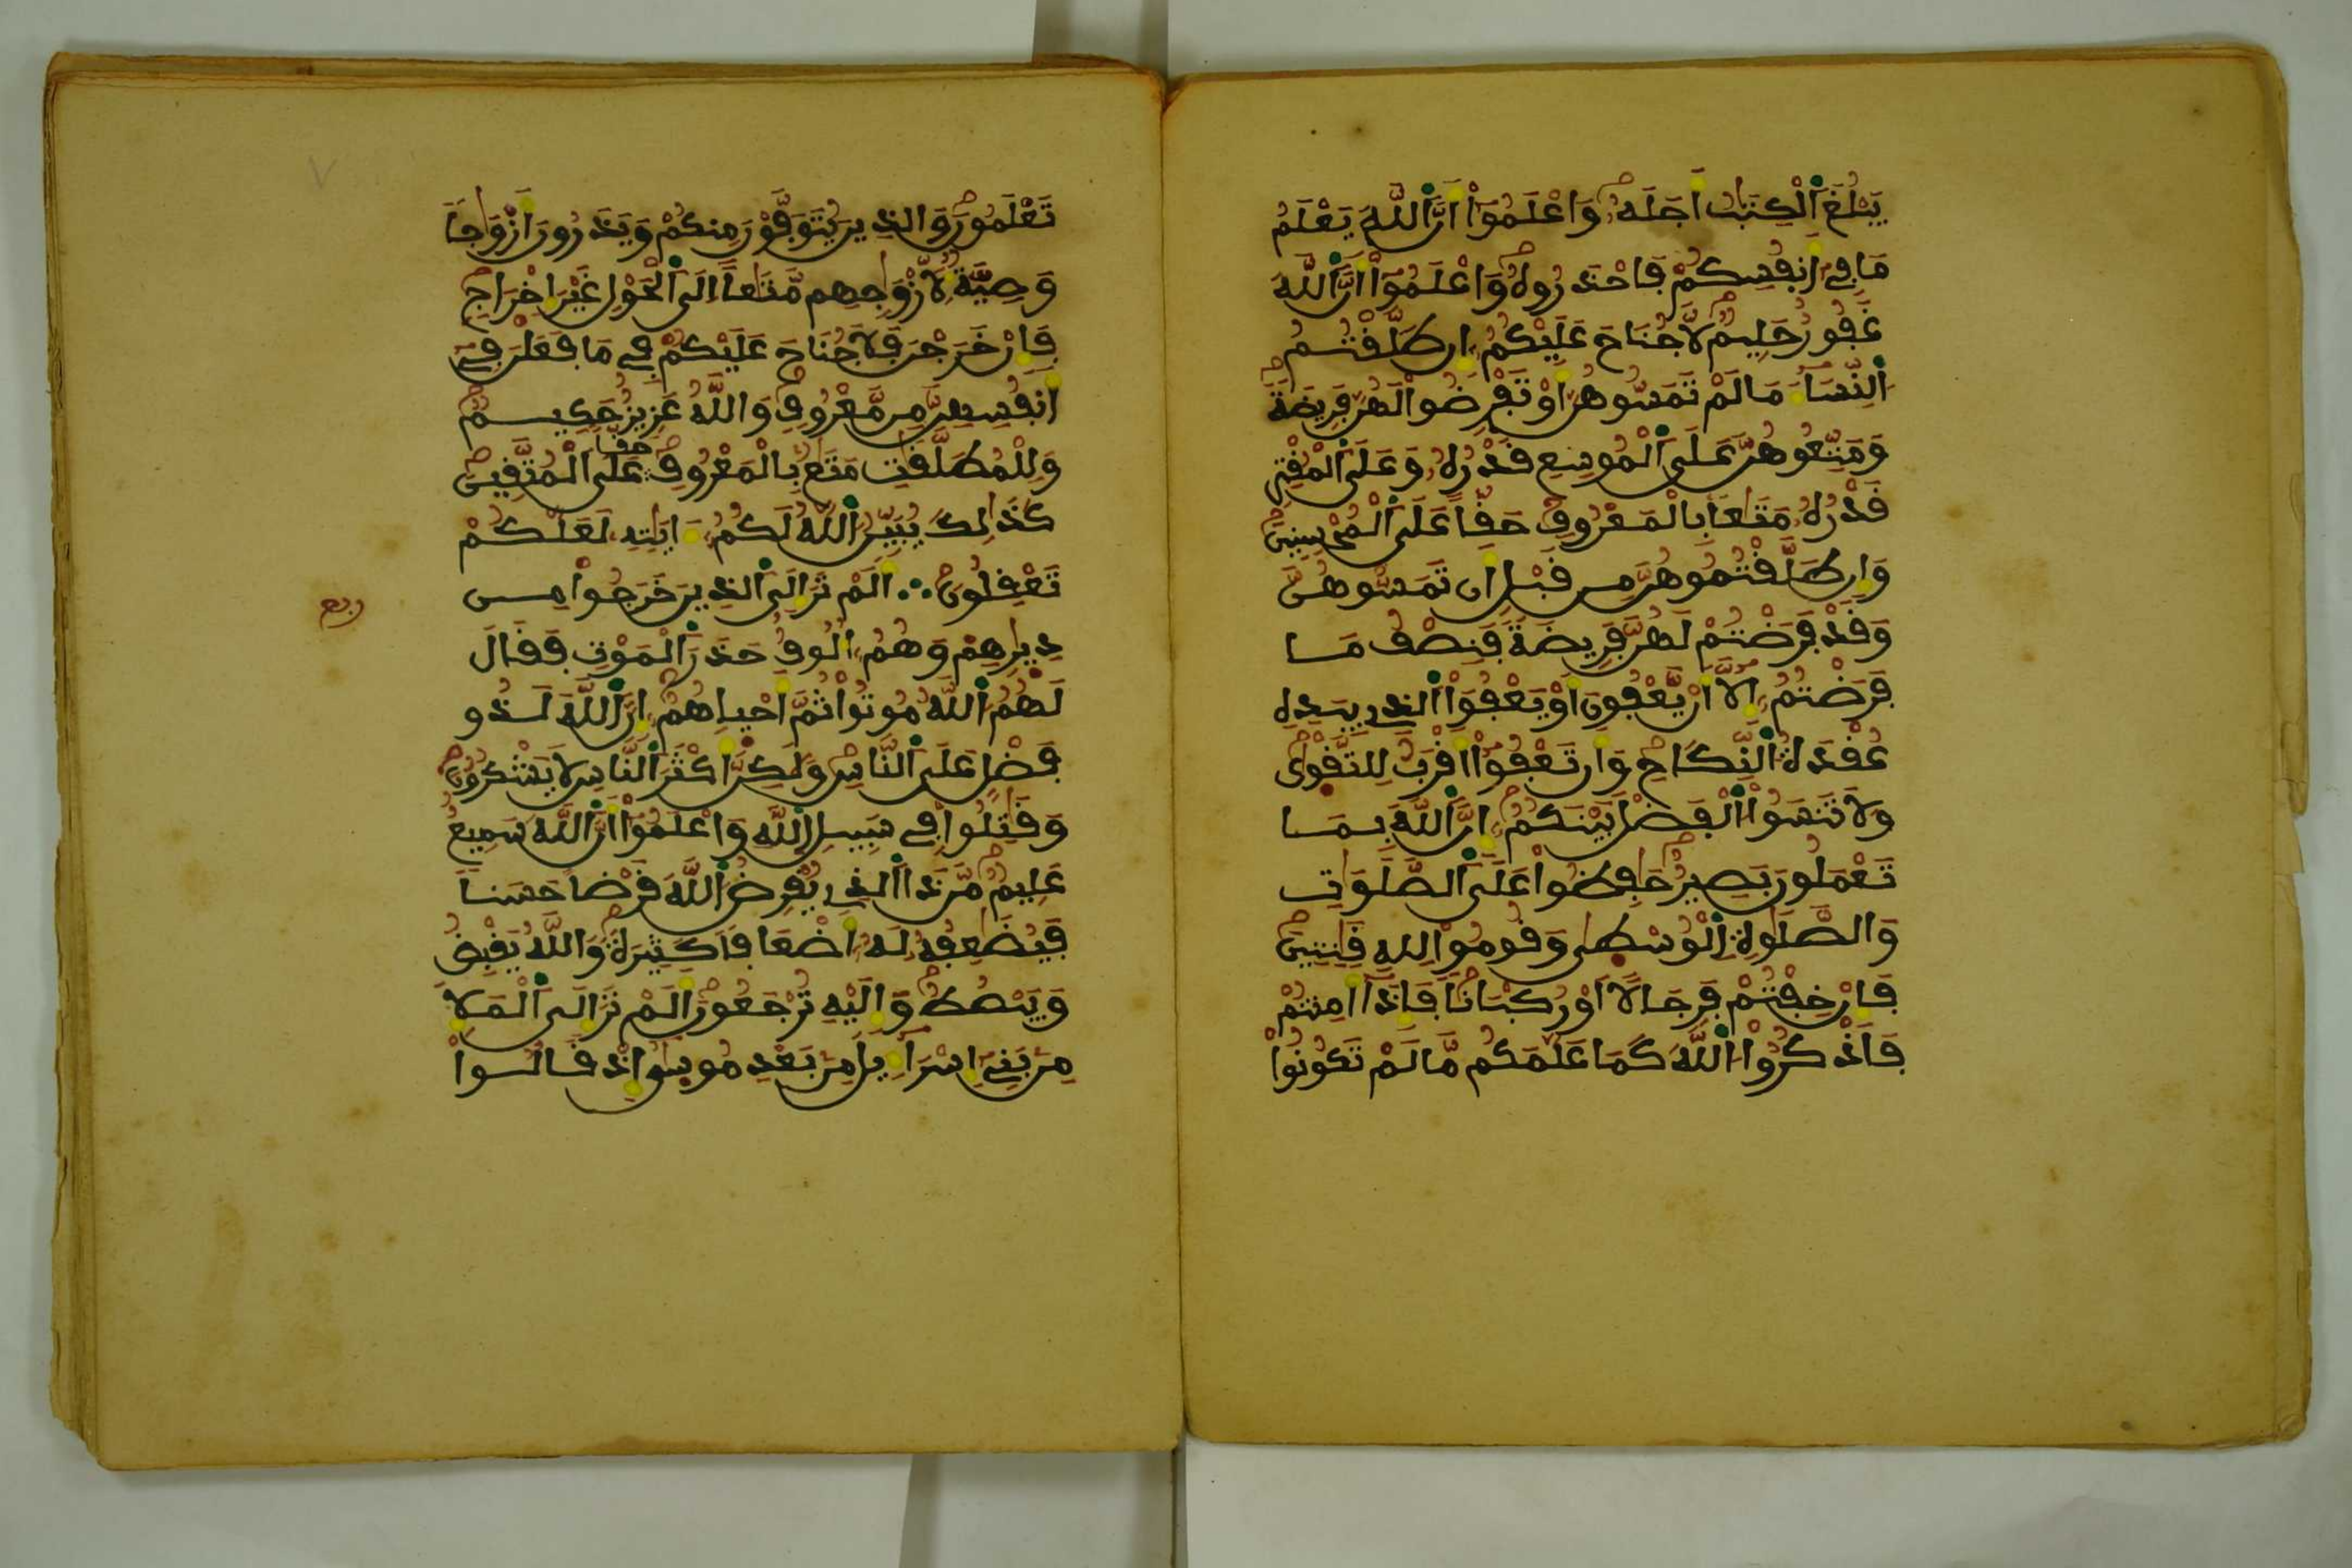 يَبْلُغَ اَ۬لْكِتَٰبُ أَجَلَهُۥ وَاعْلَمُوٓاْ أَنَّ اَ۬للَّهَ يَعْلَمُ
مَا فِےٓ أَنفُسِكُمْ فَاحْذَرُوهُ وَاعْلَمُوٓاْ أَنَّ اَ۬للَّهَ
غَفُورٌ حَلِيمٌ لَّا جُنَاحَ عَلَيْكُمُۥٓ إِن طَلَّقْتُمُ
اُ۬لنِّسَآءَ مَا لَمْ تَمَسُّوهُنَّ أَوْ تَفْرِضُواْ لَهُنَّ فَرِيضَةً
وَمَتِّعُوهُنَّ عَلَى اَ۬لْمُوسِعِ قَدْرُهُۥ وَعَلَى اَ۬لْمُقْتِرِ
قَدْرُهُۥ مَتَٰعاَۢ بِالْمَعْرُوفِ حَقّاً عَلَى اَ۬لْمُحْسِنِينَ
وَإِن طَلَّقْتُمُوهُنَّ مِن قَبْلِ أَن تَمَسُّوهُنَّ
وَقَدْ فَرَضْتُمْ لَهُنَّ فَرِيضَةً فَنِصْفُ مَا
فَرَضْتُمُۥٓ إِلَّآ أَنْ يَّعْفُونَ أَوْ يَعْفُوَاْ اَ۬لذِے بِيَدِهِ
عُقْدَةُ اُ۬لنِّكَاحِ وَأَن تَعْفُوٓاْ أَقْرَبُ لِلتَّقْو۪ىٰ
وَلَا تَنسَوُاْ اُ۬لْفَضْلَ بَيْنَكُمُۥٓ إِنَّ اَ۬للَّهَ بِمَا
تَعْمَلُونَ بَصِيرٌ حَٰفِظُواْ عَلَى اَ۬لصَّلَوَٰتِ
وَالصَّلَوٰةِ اِ۬لْوُسْط۪ىٰ وَقُومُواْ لِلهِ قَٰنِتِينَ
فَإِنْ خِفْتُمْ فَرِجَالاً أَوْ رُكْبَاناً فَإِذَآ أَمِنتُمْ
فَاذْكُرُواْ اُ۬للَّهَ كَمَا عَلَّمَكُم مَّا لَمْ تَكُونُواْ
تَعْلَمُونَ وَالذِينَ يُتَوَفَّوْنَ مِنكُمْ وَيَذَرُونَ أَزْوَٰجاً
وَصِيَّةٌ لِّأَزْوَٰجِهِم مَّتَٰعاً إِلَى اَ۬لْحَوْلِ غَيْرَ إِخْرَاجٍ
فَإِنْ خَرَجْنَ فَلَا جُنَاحَ عَلَيْكُمْ فِے مَا فَعَلْنَ فِےٓ
أَنفُسِهِنَّ مِن مَّعْرُوفٍ وَاللَّهُ عَزِيزٌ حَكِيمٌ
وَلِلْمُطَلَّقَٰتِ مَتَٰعُۢ بِالْمَعْرُوفِ حَقّاً عَلَى اَ۬لْمُتَّقِينَ
كَذَٰلِكَ يُبَيِّنُ اُ۬للَّهُ لَكُمُۥٓ ءَايَٰتِهِۦ لَعَلَّكُمْ
تَعْقِلُونَ ∴ أَلَمْ تَرَ إِلَى اَ۬لذِينَ خَرَجُواْ مِن
ربع
دِيٰ۪رِهِمْ وَهُمُۥٓ أُلُوفٌ حَذَرَ اَ۬لْمَوْتِ فَقَالَ
لَهُمُ اُ۬للَّهُ مُوتُواْ ثُمَّ أَحْيٰ۪اهُمُۥٓ إِنَّ اَ۬للَّهَ لَذُو
فَضْلٍ عَلَى اَ۬لنَّاسِ وَلَٰكِنَّ أَكْثَرَ اَ۬لنَّاسِ لَا يَشْكُرُونَ
وَقَٰتِلُواْ فِے سَبِيلِ اِ۬للَّهِ وَاعْلَمُوٓاْ أَنَّ اَ۬للَّهَ سَمِيعٌ
عَلِيمٌ مَّن ذَا اَ۬لذِے يُقْرِضُ اُ۬للَّهَ قَرْضاً حَسَناً
فَيُضَٰعِفُهُۥ لَهُۥٓ أَضْعَافاً كَثِيرَةً وَاللَّهُ يَقْبِضُ
وَيَبْصُطُ وَإِلَيْهِ تُرْجَعُونَ أَلَمْ تَرَ إِلَى اَ۬لْمَلَإِ
مِنۢ بَنِےٓ إِسْرَآءِيلَ مِنۢ بَعْدِ مُوس۪ىٰٓ إِذْ قَالُواْ